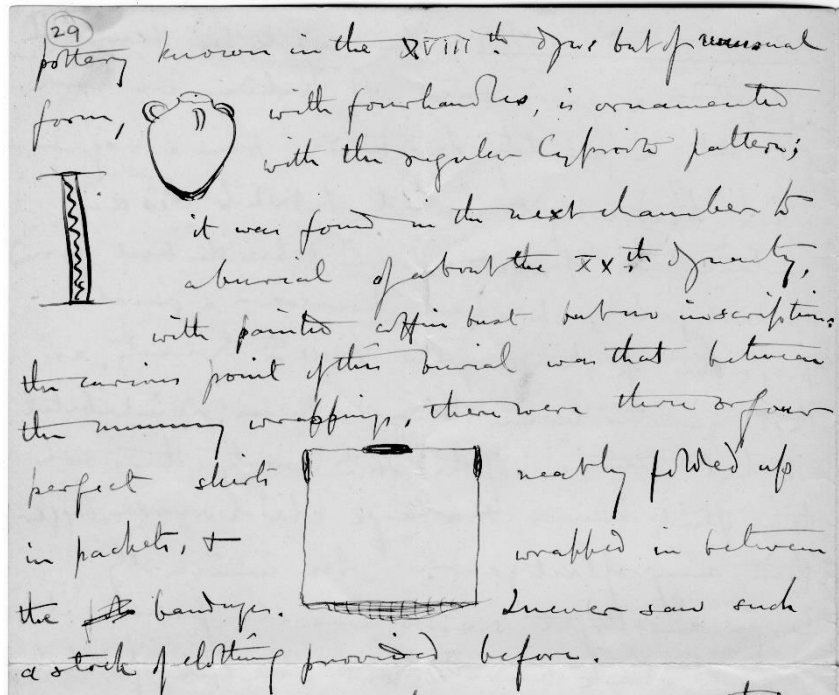 29
pottery known in the XVIIIth dyns but of unusual
form, with four handles, is ornamented
with the regular Cypriote pattern;
it was found in the next chamber to
a burial of about the XXth dynasty,
with painted coffin bust but no inscription.
the curious point of this burial was that between
the mummy wrappings, there were three or four
perfect shirts neatly folded up
in packets, & wrapped in between
the bandages. I never saw such
a stock of clothing provided before.